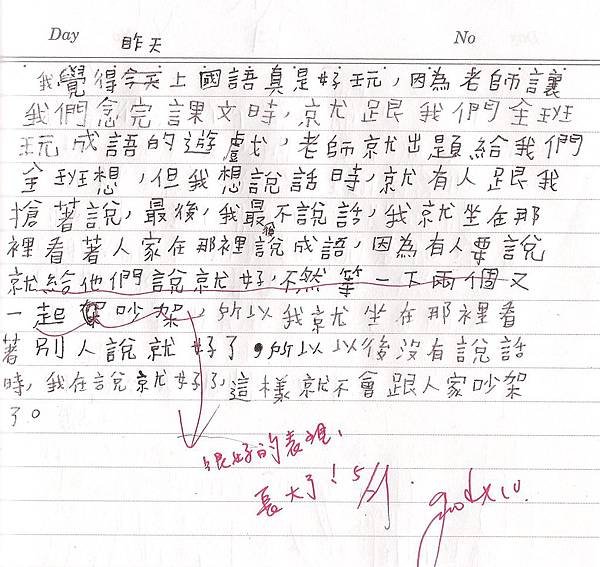 Day 昨天 No
我覺得今天上國語真是好玩,因為老師讓
我們念完課文時,就跟我們全班
玩成語的遊戲,老師就出題給我們
全班想,但我想說話時,就有人跟我
搶著說,最後,我最不說話,我就坐在那
裡看著人家在那裡說成語,因為有人要說
就給他們說就好,不然等一下兩個又
一起吵架,所以我就坐在那裡看
著別人說就好了,所以以後沒有說話
時,我在說就好了,這樣就不會跟人家吵架
了。
很好的表現,
長大了!
good x 10.